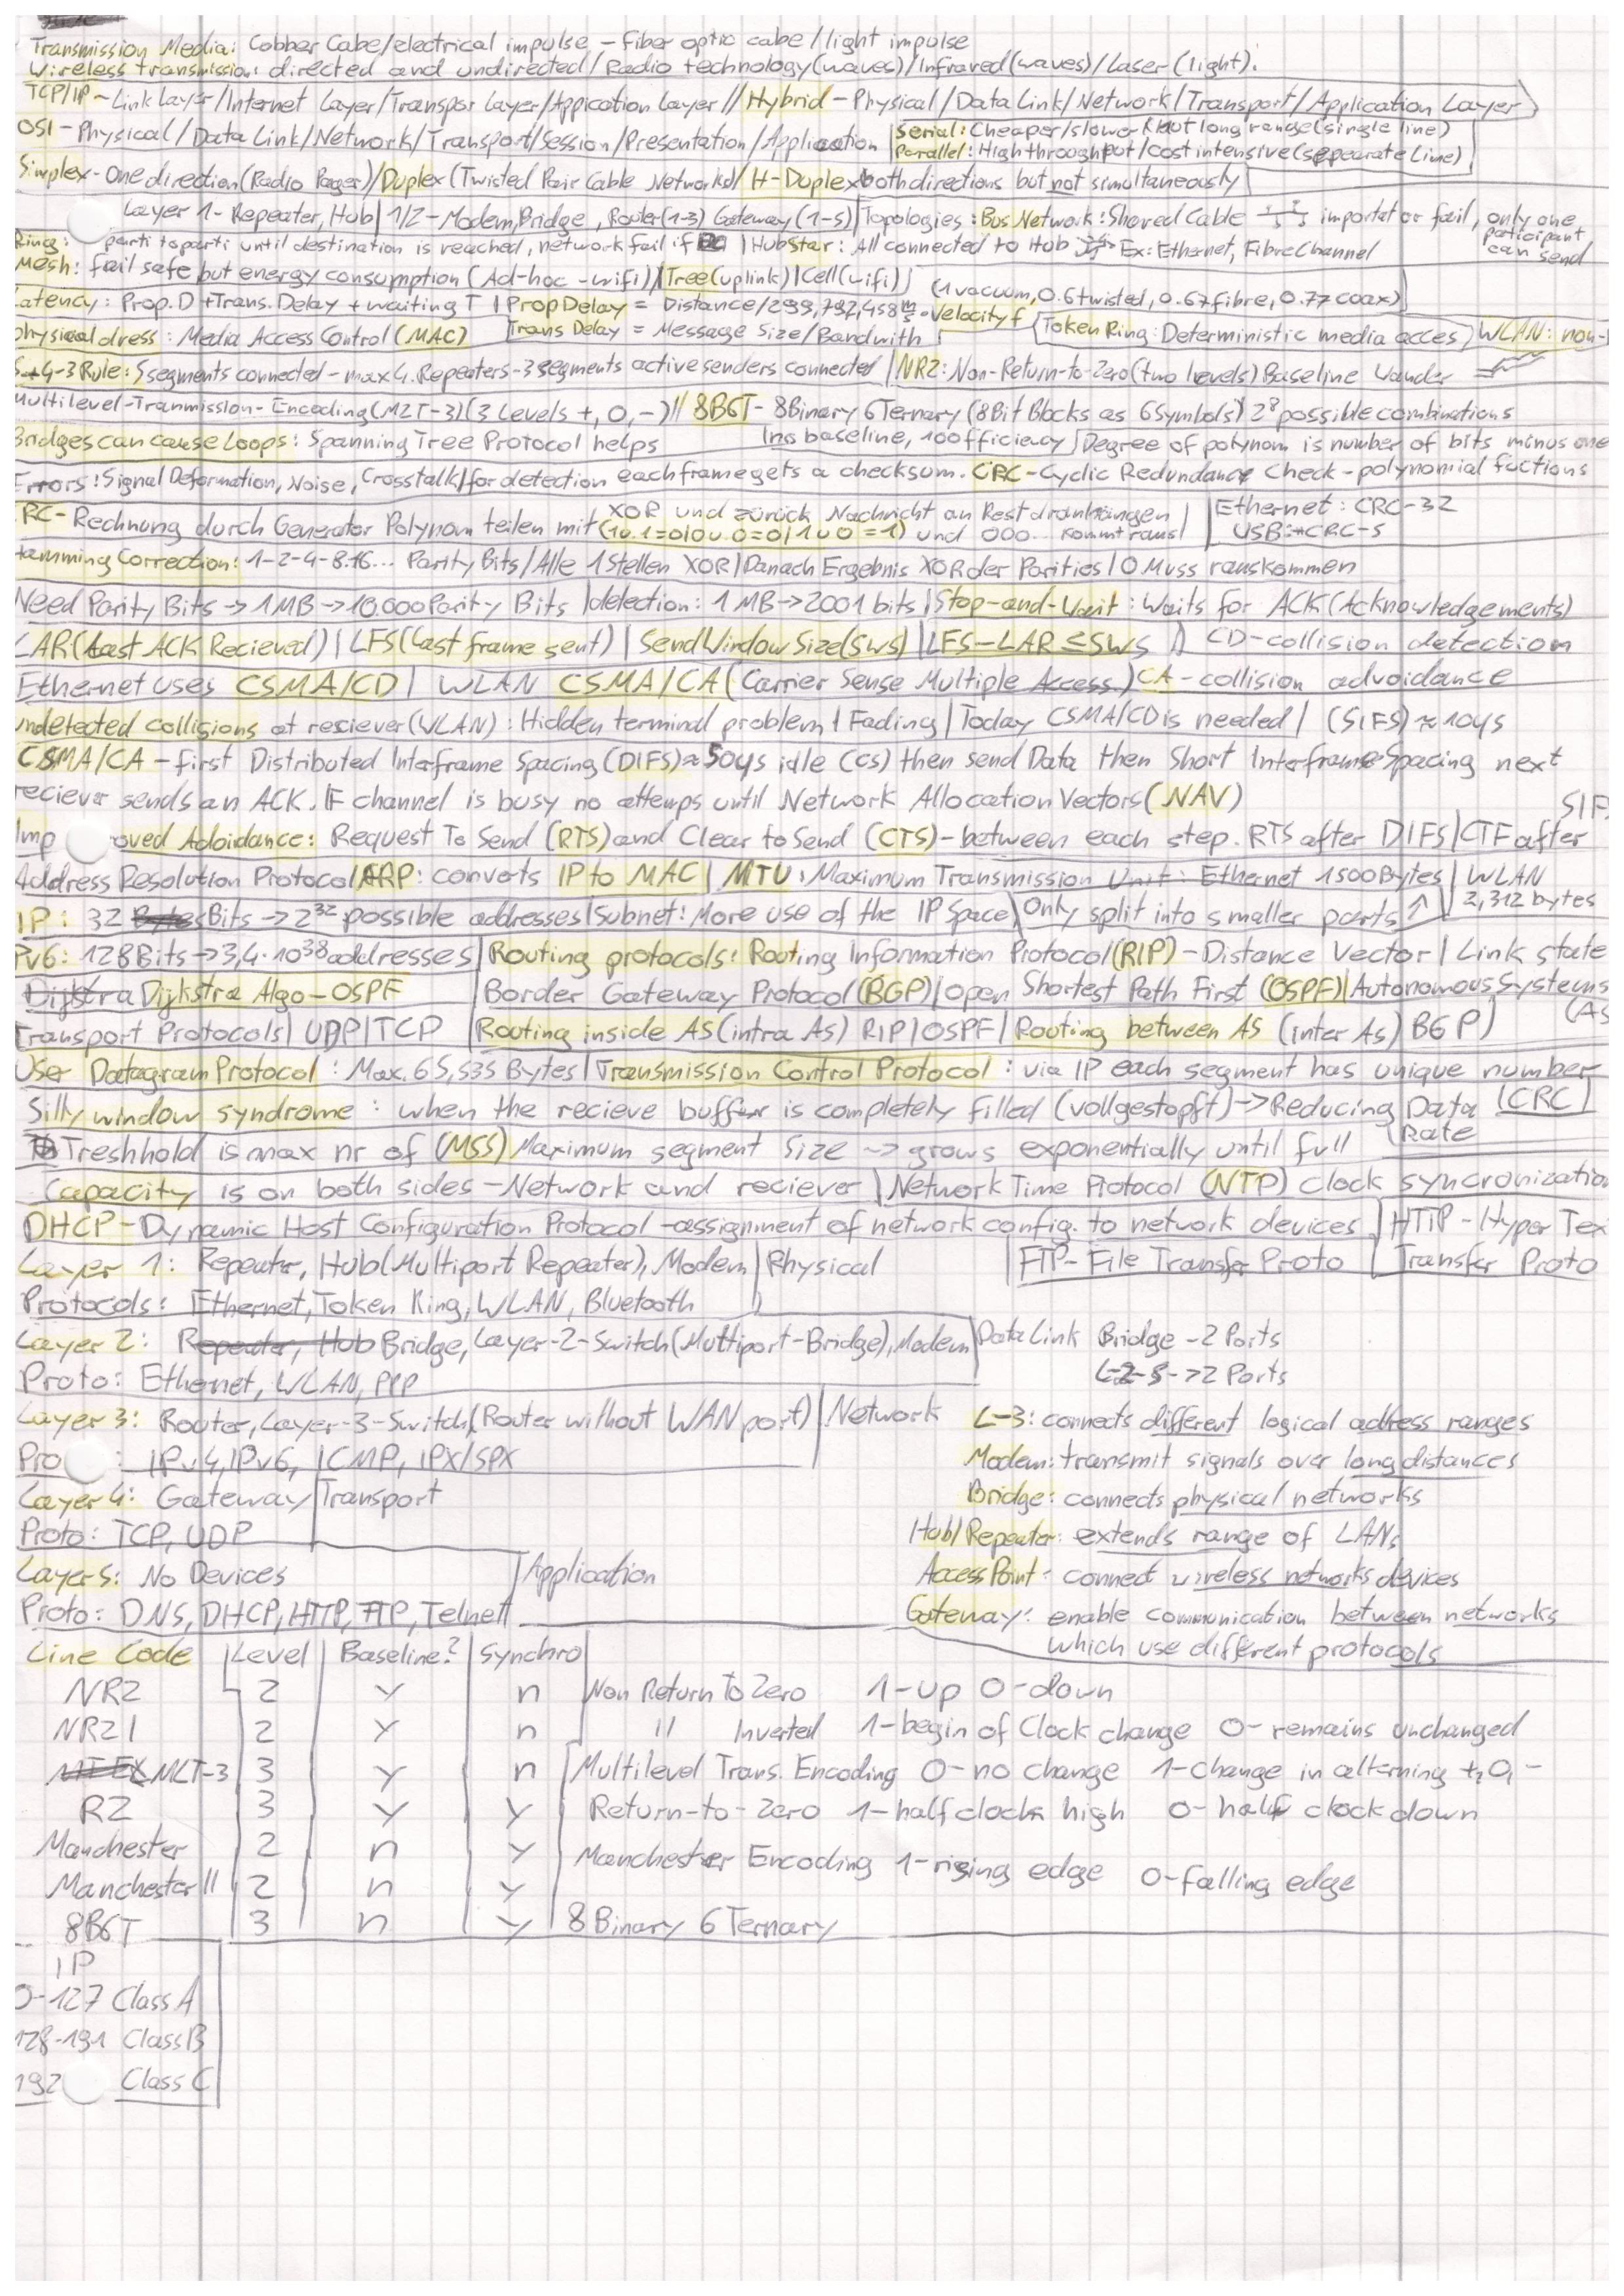 Transmission Media: Cobber Cabe/electrical impulse - Fiber optic cabe/light impulse
Wireless transmission: directed and undirected/Radio technology(waves)/Infrared(waves)/Laser(light).
TCP/IP-Link Layer/Internet Layer/Transpor Layer/Appication Layer//Hybrid-Physical/Data Link/Network/Transport/Application Layer
OSI-Physical/Data Link/Network/Transport/Session/Presentation/Application | Serial: Cheaper/slower but long range(single line)
Parallel: High throughput/cost intensive(sepearate Line)
Simplex-One direction(Radio Pager)/Duplex(Twisted Pair Cable Networks)/H-Duplex both directions but not simultaneously
Layer 1-Repeater, Hub| 1/2-Modem, Bridge, Router(1-3) Gateway(1-5)|Topologies: Bus Network: Shared Cable importat or fail, only one participant can send
Ring: parti to parti until destination is reached, network fail if | Hub Star: All connected to Hub Ex: Ethernet, Fibre Channel
Mesh: fail safe but energy consumption (Ad-hoc-wifi)|Tree(uplink)|Cell(wifi)|
Latency: Prop.D+Trans.Delay+waiting T | Prop Delay = Distance/299,792,458 m/s · Velocity f (1 vacuum, 0.6 twisted, 0.67 fibre, 0.77 coax)
physical dress: Media Access Control (MAC) Trans Delay = Message Size/Bandwith Token Ring: Deterministic media acces) WLAN: non-
5-4-3 Rule: 5 segments connected-max 4.Repeaters-3 segments active senders connected | NRZ: Non-Return-to-Zero(two levels) Baseline Wander
Multilevel-Tranmission-Encoding(MLT-3)(3 Levels +, 0, -)// 8B6T-8Binary 6Ternary (8Bit Blocks as 6 Symbols) 2⁸ possible combinations
Bridges can cause Loops: Spanning Tree Protocol helps no baseline, 100 efficiency | Degree of polynom is number of bits minus one
Errors: Signal Deformation, Noise, Crosstalk/for detection each frame gets a checksum. CRC-Cyclic Redundance Check-polynomial fuctions
CRC-Rechnung durch Generator Polynom teilen mit XOR und zurück Nachricht an Rest dranhängen (1 o. 1=0|0 u. 0=0|1 u 0=1) und 000.. kommt raus| Ethernet: CRC-32
USB: CRC-5
Hamming Correction: 1-2-4-8.16... Parity Bits/Alle 1 Stellen XOR|Danach Ergebnis XOR der Parities/0 Muss rauskommen
Need Parity Bits → 1MB→10.000 Parity Bits |detection: 1MB→2001 bits|Stop-and-Wait: Waits for ACK(Acknowledgements)
LAR(Last ACK Recieved)|LFS(Last frame sent)|Send Window Size(SWS)|LFS-LAR≤SWS CD-collision detection
Ethernet uses CSMA/CD| WLAN CSMA/CA (Carrier Sense Multiple Access) CA-collision advoidance
undetected collisions at resiever(WLAN): Hidden terminal problem|Fading|Today CSMA/CD is needed| (SIFS)≈10ys
CSMA/CA-first Distributed Interframe Spacing(DIFS)≈50ys idle (cs) then send Data then Short Interframe Spacing next
reciever sends an ACK. IF channel is busy no attemps until Network Allocation Vectors(NAV)
Improved Adoidance: Request To Send (RTS) and Clear to Send (CTS)-between each step. RTS after DIFS|CTF after SIF
Address Resolution Protocol/ARP: converts IP to MAC| MTU: Maximum Transmission Unit: Ethernet 1500 Bytes| WLAN 2,312 bytes
IP: 32 Bits → 2³² possible addresses|Subnet: More use of the IP Space|Only split into smaller parts ↑
IPv6: 128 Bits→3,4·10³⁸ addresses|Routing protocols: Routing Information Protocol(RIP)-Distance Vector|Link state
Dijkstra Dijkstra Algo-OSPF Border Gateway Protocol(BGP)|open Shortest Path First (OSPF)|Autonomous Systems (AS
Transport Protocols|UDP|TCP Routing inside AS(intra As) RIP|OSPF|Routing between AS (inter As) BGP)
User Datagram Protocol: Max. 65,535 Bytes|Transmission Control Protocol: via IP each segment has unique number
Silly window syndrome: when the recieve buffer is completely filled (vollgestopft)→Reducing Data Rate |CRC|
Treshhold is max nr of (MSS) Maximum segment Size → grows exponentially until full
Capacity is on both sides-Network and reciever | Network Time Protocol (NTP) clock syncronizatio
DHCP-Dynamic Host Configuration Protocol-assignment of network config. to network devices | HTTP-Hyper Tex
Transfer Proto
Layer 1: Repeater, Hub(Multiport Repeater), Modem|Physical | FTP-File Transfer Proto
Protocols: Ethernet, Token Ring, WLAN, Bluetooth
Layer 2: Repeater, Hub Bridge, Layer-2-Switch(Multiport-Bridge), Modem|Data Link Bridge-2 Ports
L-2-S->2 Ports
Proto: Ethernet, WLAN, PPP
Layer 3: Router, Layer-3-Switch(Router without WAN port)|Network L-3: connects different logical address ranges
Pro: IPv4, IPv6, ICMP, IPX/SPX Modem: transmit signals over long distances
Layer 4: Gateway|Transport Bridge: connects physical networks
Proto: TCP, UDP Hub/Repeater: extends range of LANs
Layer 5: No Devices |Application Access Point: connect wireless networks devices
Proto: DNS, DHCP, HTTP, FTP, Telnet Gateway: enable communication between networks
which use different protocols
Line Code | Level | Baseline? | Synchro
NRZ 2 y n Non Return To Zero 1-up 0-down
NRZI 2 y n " Inverted 1-begin of Clock change 0-remains unchanged
MLT-3 3 y n Multilevel Trans. Encoding 0-no change 1-change in alterning +, 0, -
RZ 3 y y Return-to-Zero 1-half clock high 0-half clock down
Manchester 2 n y Manchester Encoding 1-rising edge 0-falling edge
Manchester II 2 n y
8B6T 3 n y 8 Binary 6 Ternary
IP
0-127 Class A
128-191 Class B
192 Class C